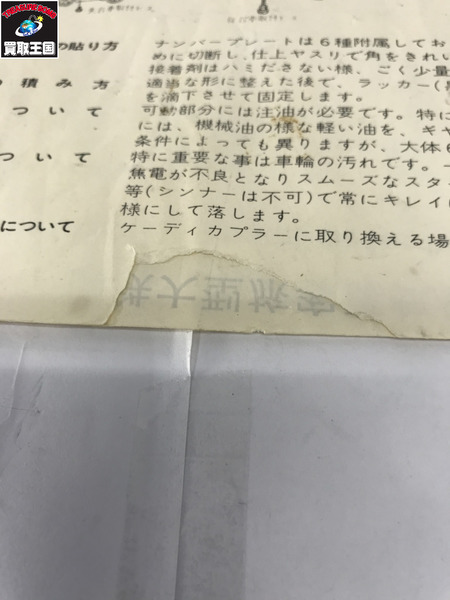 買取王国
の貼り方 ナンバープレートは6種附属してお
めに切断し、仕上ヤスリで角をきれい
接着剤はハミださない様、ごく少量
の積み方 適当な形に整えた後で、ラッカー(
を滴下させて固定します。
ついて 可動部分には注油が必要です。特に
には、機械油の様な軽い油を、キャ
条件によっても異りますが、大体6
ついて 特に重要な事は車輪の汚れです。
焦電が不良となりスムーズなスタ
等(シンナーは不可)で常にキレイに
様にして落します。
について ケーディカプラーに取り換える場